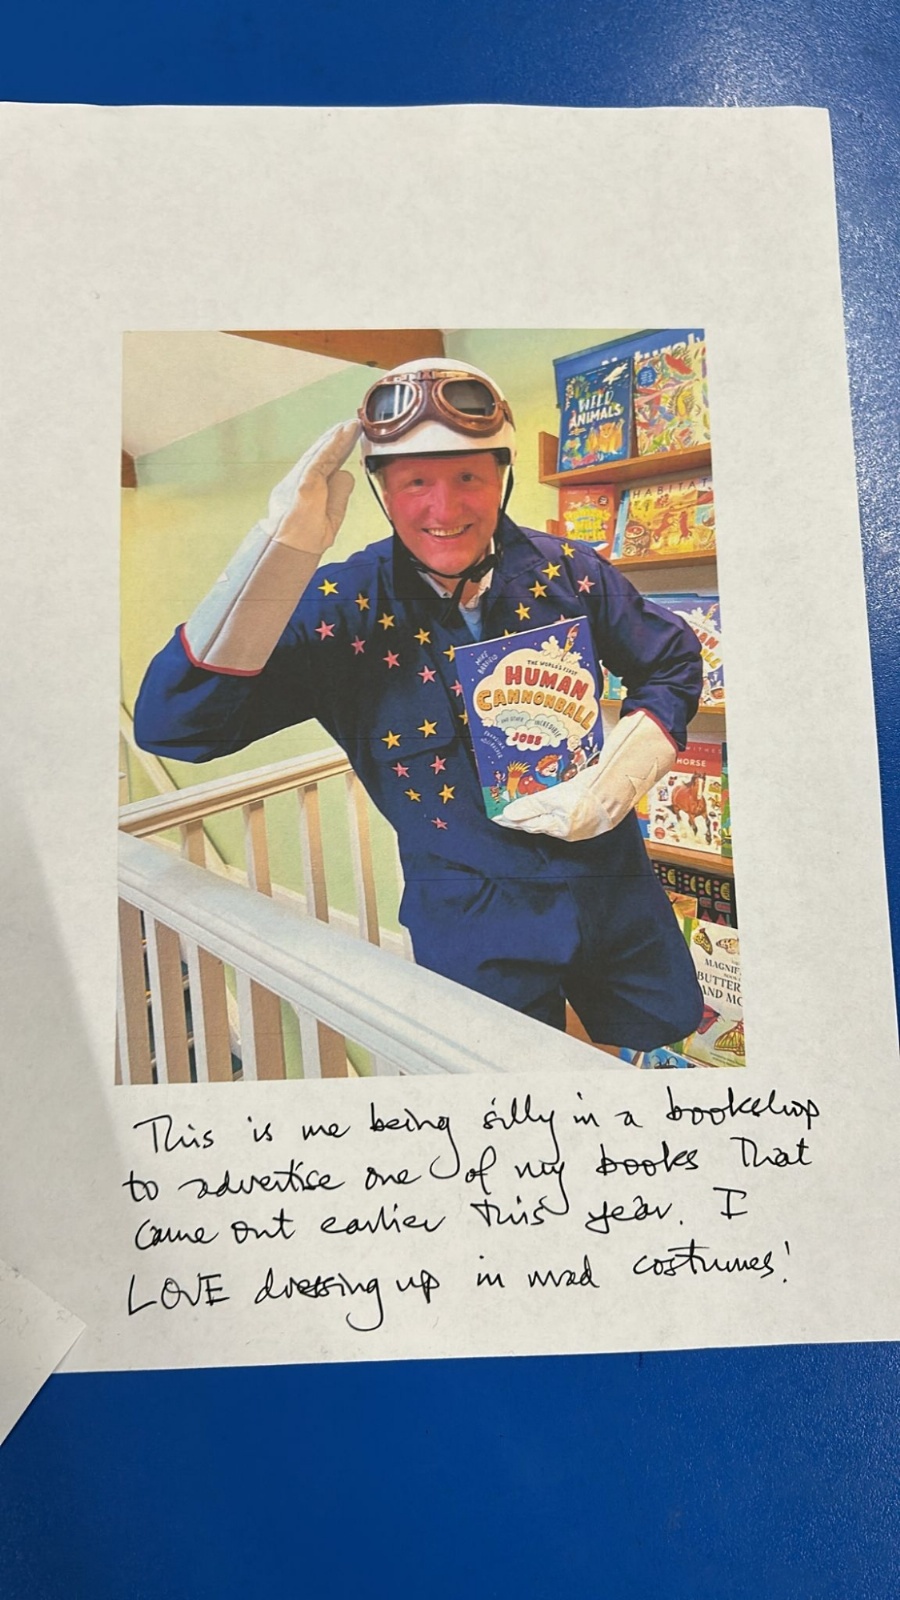 Natural
WILD
ANIMALS
HABITAT
THE WORLD'S FIRST
HUMAN
CANNONBALL
AND OTHER INCREDIBLE
JOBS
HORSE
MAGNIF
BUTTER
AND MO
This is me being silly in a bookshop
to advertise one of my books that
came out earlier this year. I
LOVE dressing up in mad costumes!